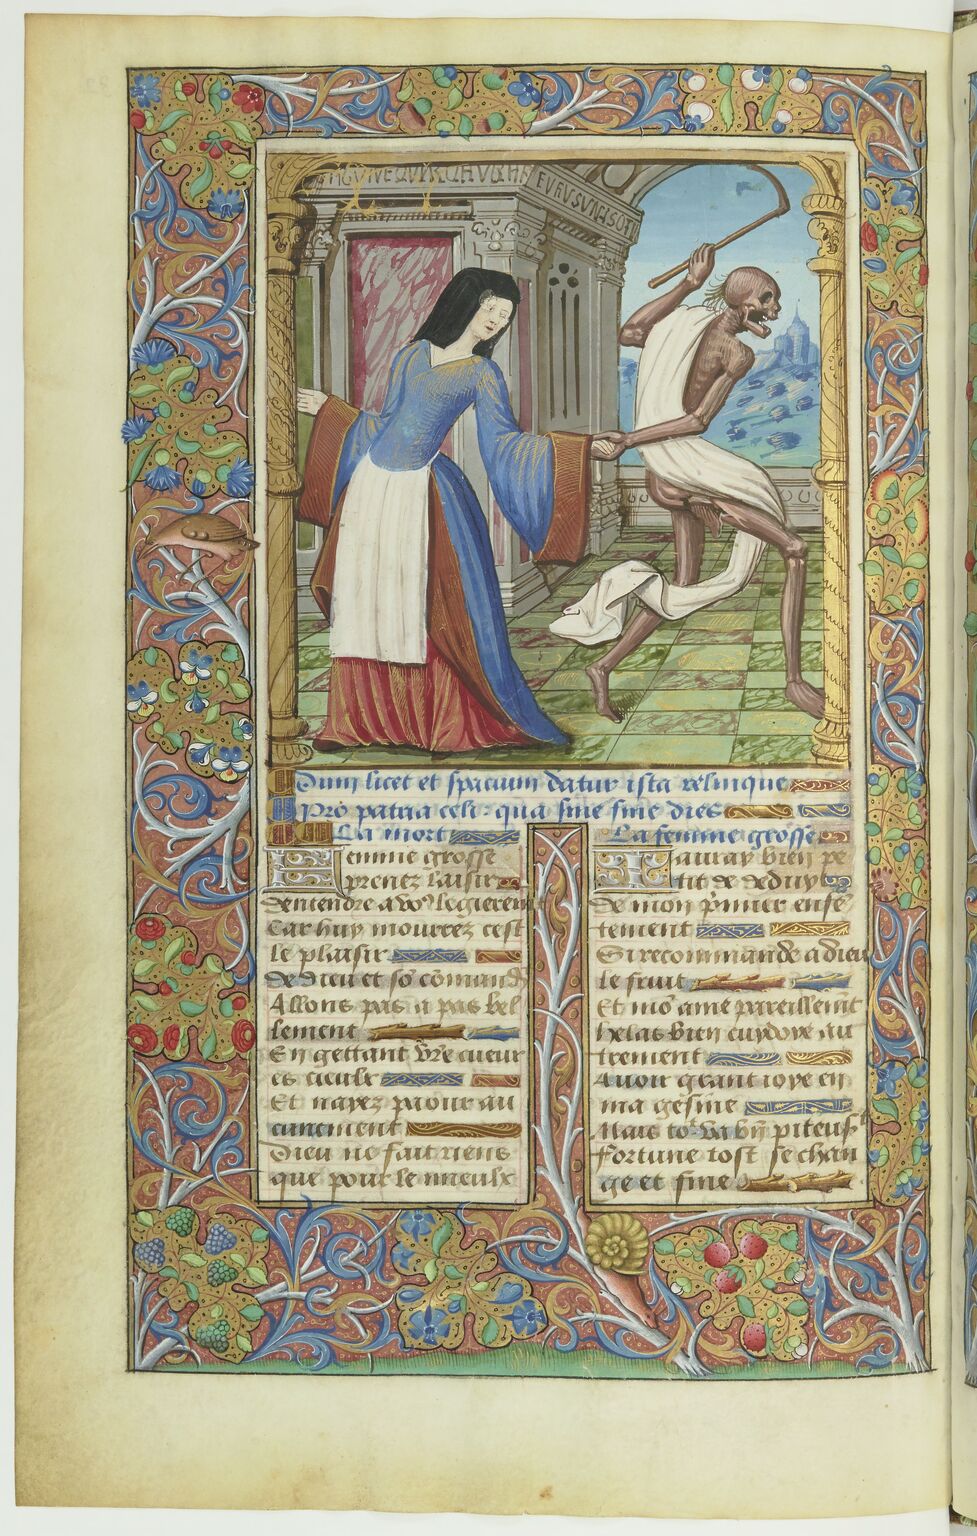 Dum licet et spacium datur ista relinque
Pro patria celi qua sine fine dies
La mort
Femme grosse
prenez laisir
Dentendre a vo9 legierement
Car huy mourrez cest
le plaisir
de dieu et so comand
Allons pas a pas bel
lement
En gettant vre cueur
es cieulx
Et nayez paour au
cunement
Dieu ne fait riens
que pour le mieulx
La femme grosse
Jauray bien pe
tit de deduyt
de mon pmier enfe
tement
Si recommande a dieu
le fruit
Et mo ame pareillemt
helas bien cuydoye au
trement
Avoir grant ioye en
ma gesine
Mais tot va by piteuse
Fortune tost se chan
ge et fine